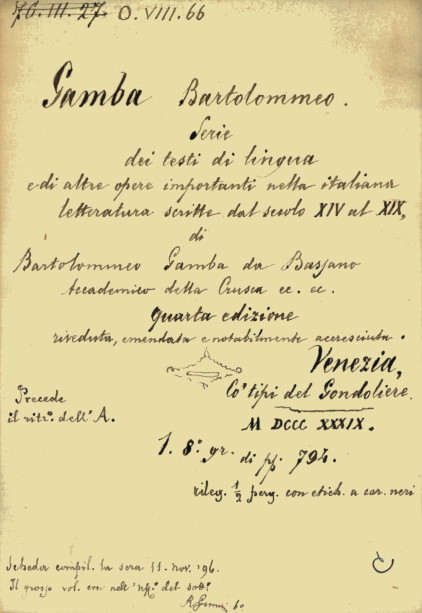 7G. III. 27. O. VIII. 66
Gamba Bartolommeo.
Serie
dei testi di lingua
e di altre opere importanti nella italiana
letteratura scritte dal secolo XIV al XIX,
di
Bartolommeo Gamba da Bassano
Accademico della Crusca ec. ec.
Quarta edizione
riveduta, emendata e notabilmente accresciuta.
Venezia,
Co' tipi del Gondoliere.
M DCCC XXXIX.
Precede
il ritr.o dell'A.
1. 8.o gr. di pp. 794.
rileg. 1/2 perg. con etich. a car. neri
Scheda compil. la sera 11. nov. '96.
Il grosso vol. era nell' del sott.